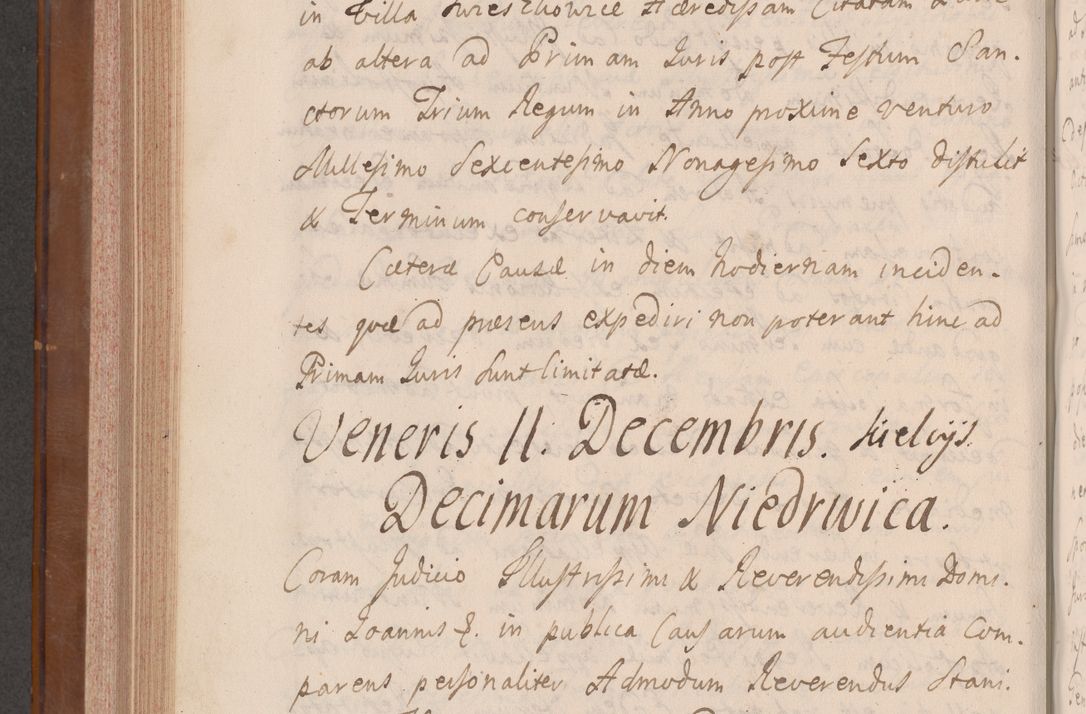 in Villa Swieszkowice Hæredissam Citatam
ab altera ad Primam Juris post Festum San-
ctorum Trium Regum in Anno proxime venturo
Millesimo Sexcentesimo Nonagesimo Sexto distulit
& Terminum conservavit.
Cæteræ Causæ in diem hodiernam inciden-
tes quæ ad præsens expediri non poterant hinc ad
Primam Juris sunt limitatæ.
Veneris 11. Decembris. Kielcijs
Decimarum Niedrwica.
Coram Judicio Illustrissimi & Reverendissimi Domi-
ni Joannis &. in publica Causarum audientia Com-
parens personaliter Admodum Reverendus Stani-